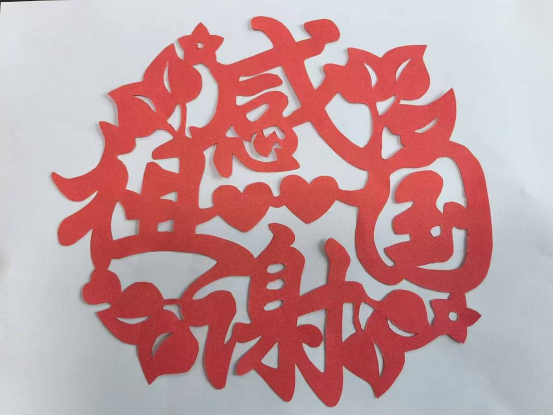 感
祖国
谢